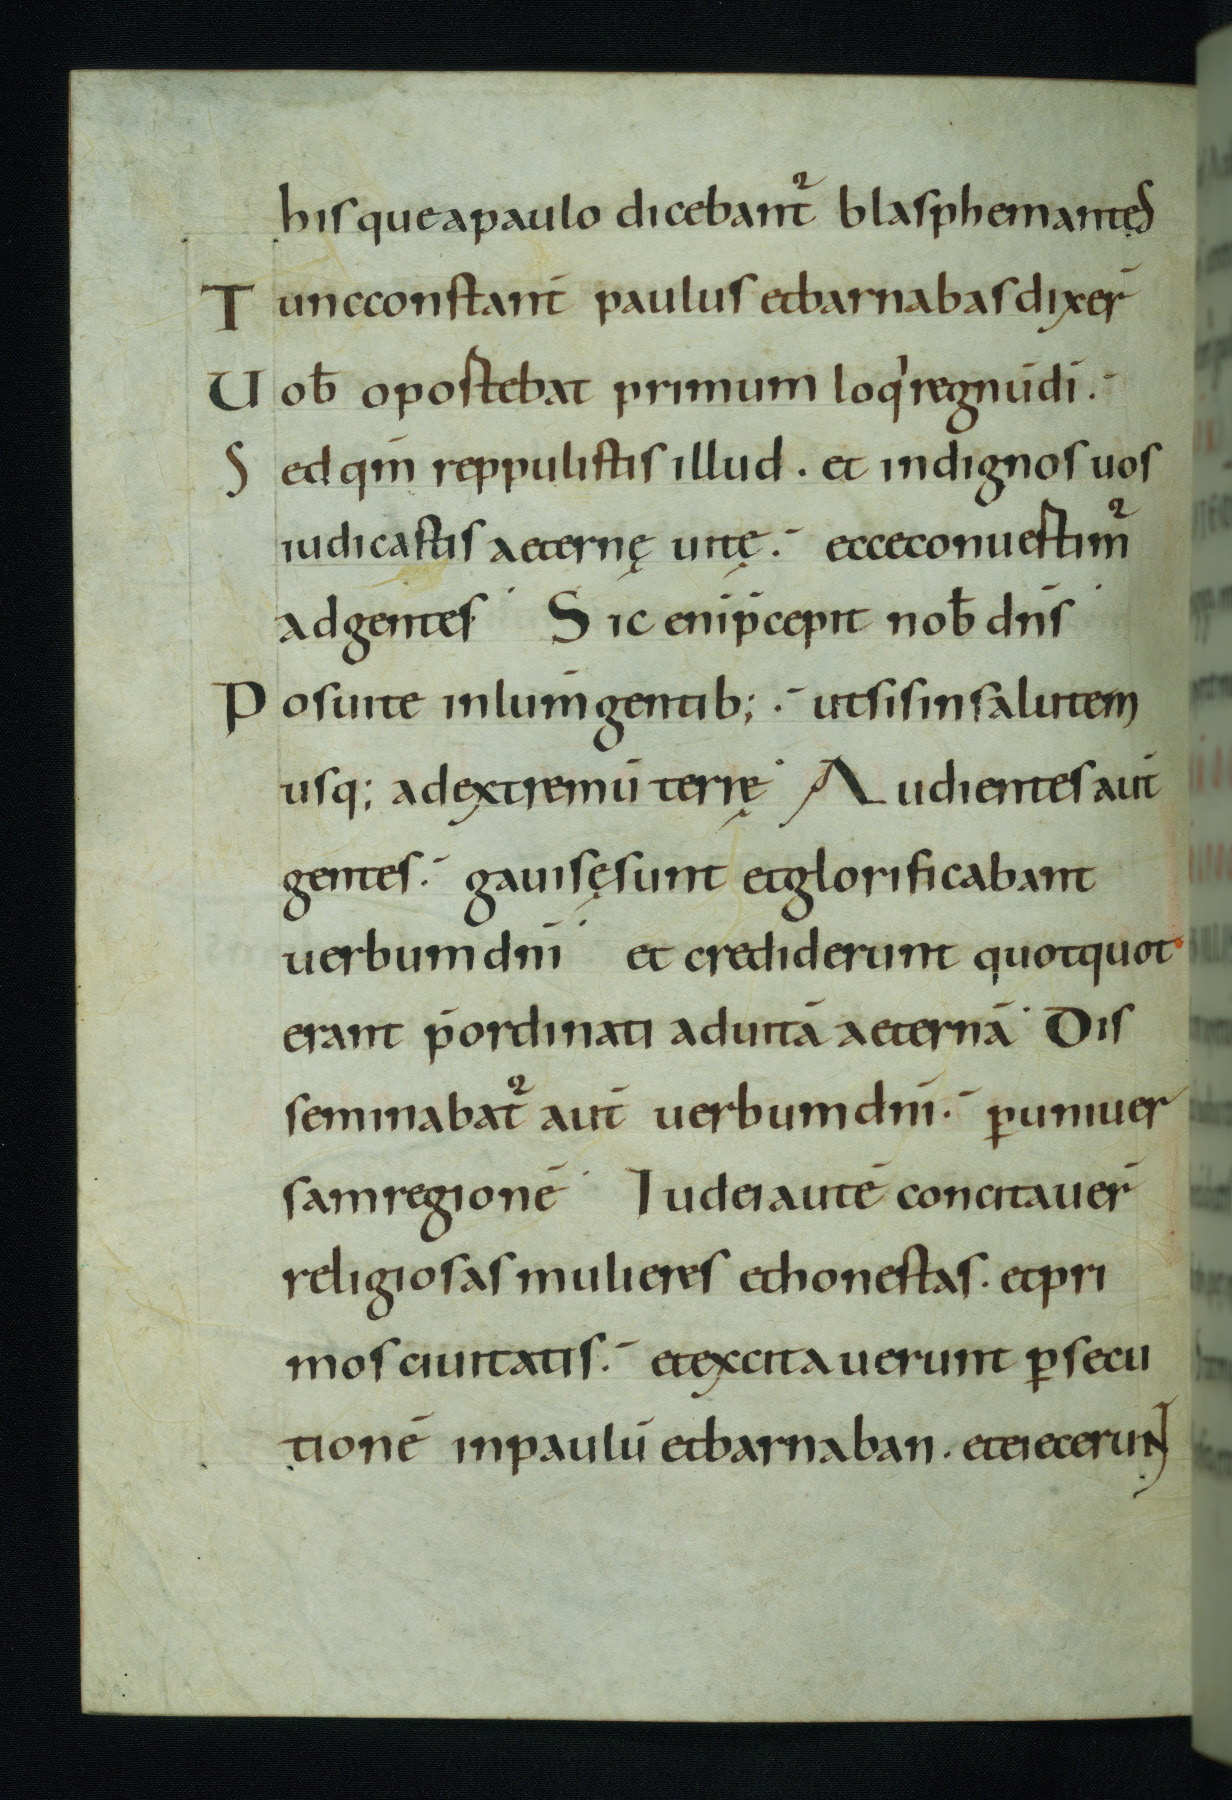 his que a paulo dicebant᷑ blasphemantes
Tunc constant̄ paulus et barnabas dixer̄
Uob̄ oportebat primum loq̍ regnū dī .
Sed qm̄ reppulistis illud . et indignos uos
iudicastis aeternę uitę . ecce conuertim᷑
ad gentes Sic eni p̄cepit nob̄ dn̄s
Posui te in lum̄ gentib; . ut sis in salutem
usq; ad extremū terrę Audientes aut̄
gentes . gauisę sunt et glorificabant
uerbum dn̄i et crediderunt quotquot
erant p̄ordinati ad uitā aeternā Dis
seminabat᷑ aut̄ uerbum dn̄i . ꝑ uniuer
sam regionē Iudei autē concitauer̄
religiosas mulieres et honestas . et pri
mos ciuitatis . et excitauerunt ꝑsecu
tionē in paulū et barnaban . et eiecerunt